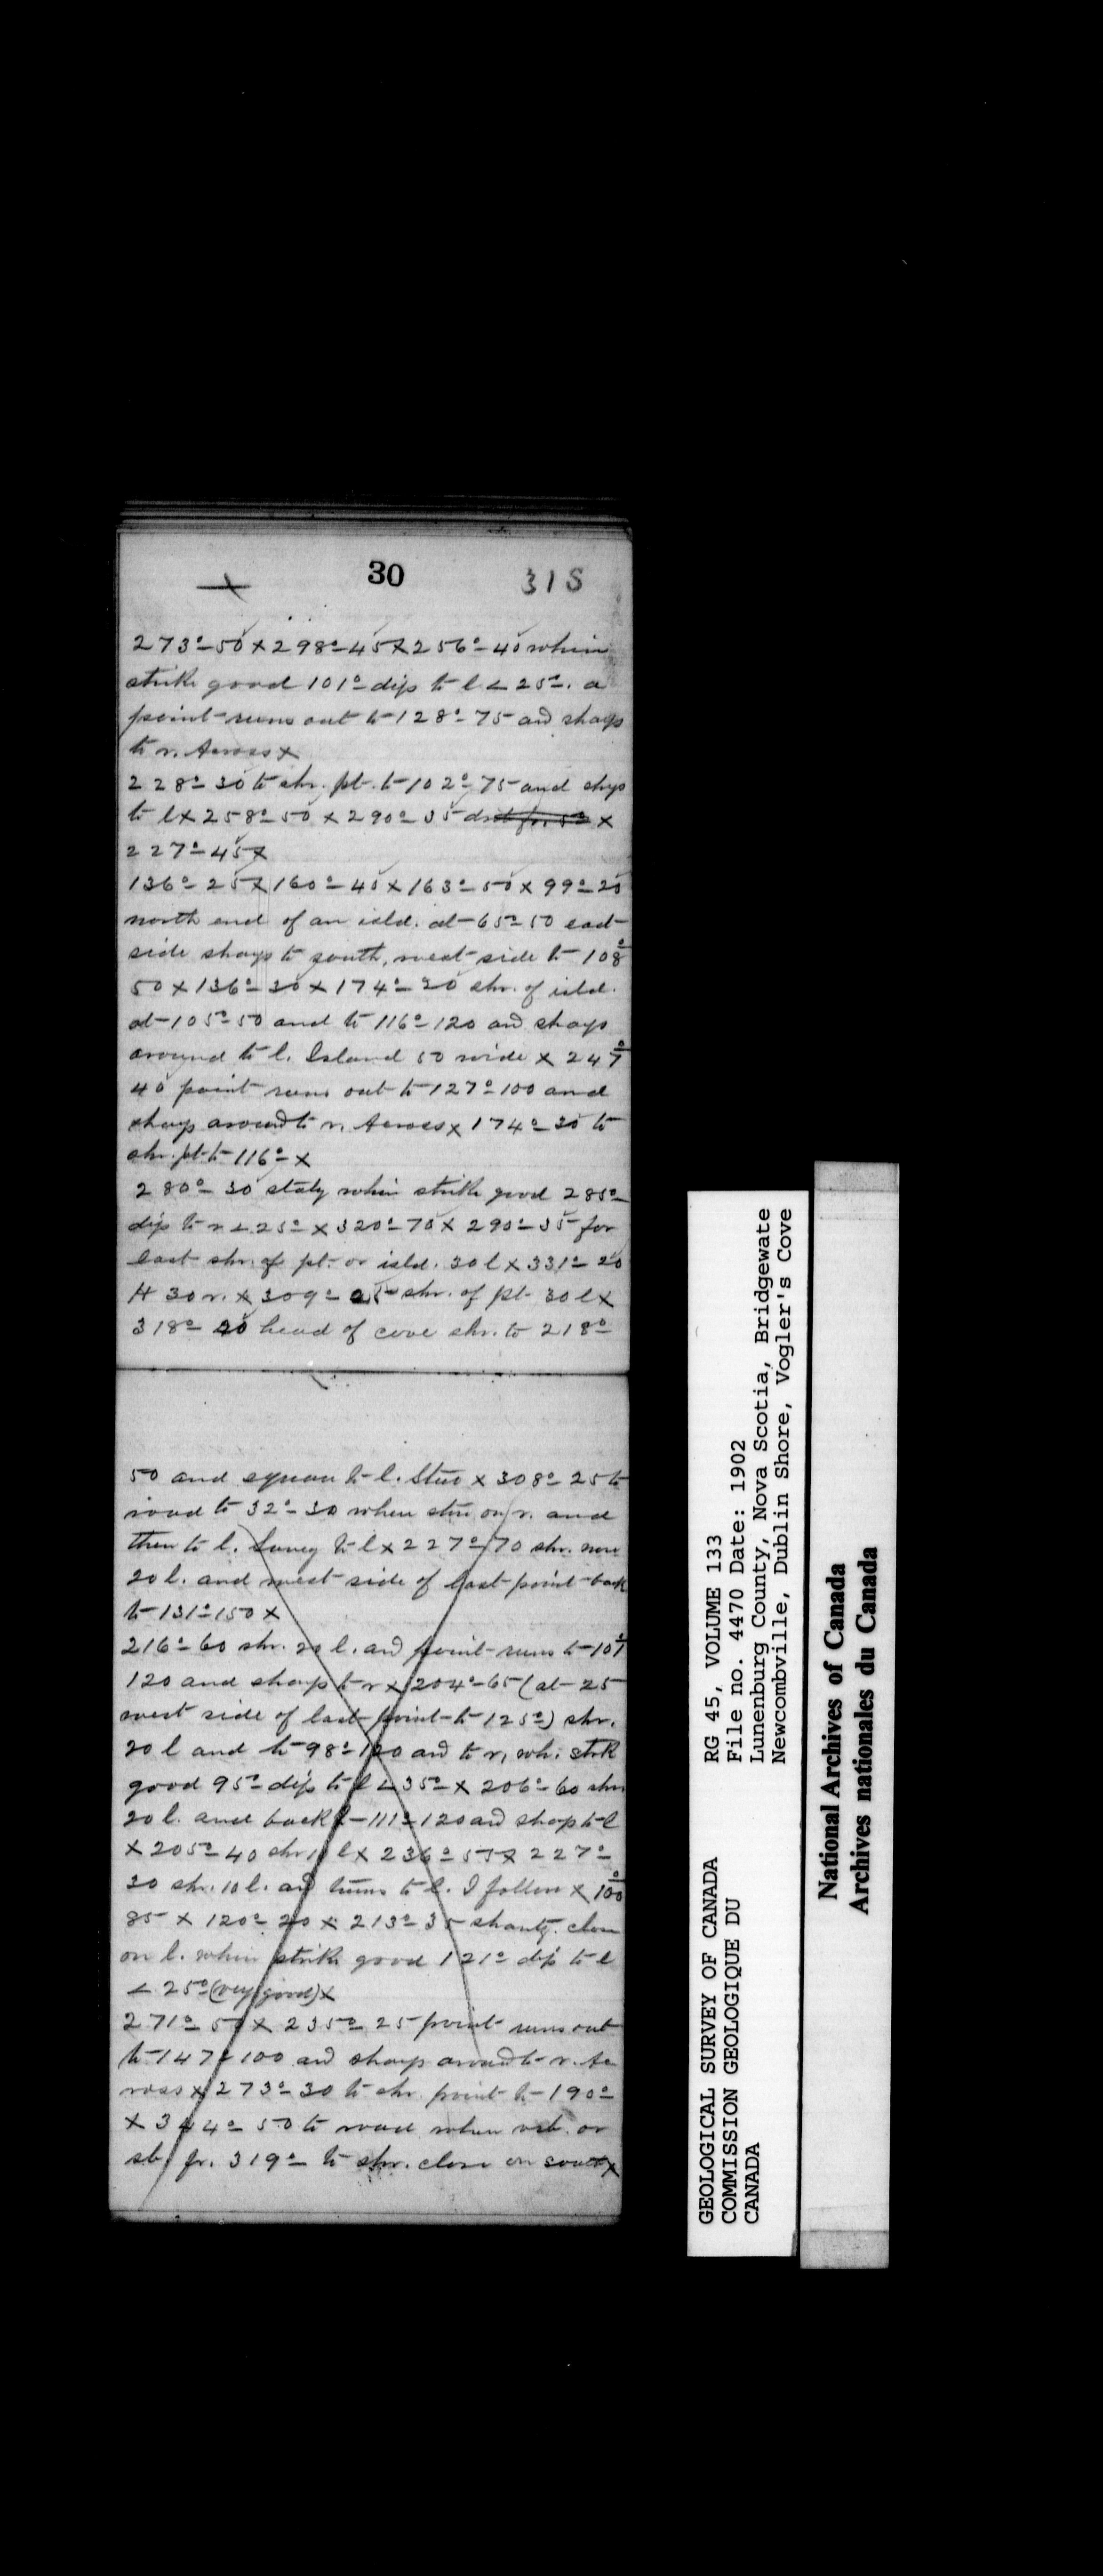 30
31S
273°-50 x 298°-45 x 256°-40 whin
strike good 101° dip to l < 25°. a
point runs out to 128°-75 and shaps
to r. Across x
228°-30 to shr. pt. to 102°-75 and shps
to l x 258°-50 x 290°-35 x
227°-45 x
136°-25 x 160°-40 x 163°-50 x 99°-20
north end of an isld. at 65°-50 east
side shaps to south, west side to 108°
50 x 136°-30 x 174°-20 shr. of isld.
at 105°-50 and to 116°-120 and shaps
around to l. Island 50 wide x 247°
40 point runs out to 127°-100 and
shaps around to r. Across x 174°-30 to
shr. pt. to 116° x
280°-30 slaty whin strike good 285°
dip to r < 25° x 320°-70 x 290°-35 for
east shr. of pt. or isld. 30 l x 331°-20
H 30 r. x 309°-25 shr. of pt. 30 l x
318°-20 head of cove shr. to 218°
50 and square to l. x 308°-25 to
road to 32°-30 when on r. and
then to l. to l x 227°-70 shr. now
20 l. and west side of last point back
to 131°-150 x
216°-60 shr. 20 l. and point runs to 107°
120 and shaps to r x 204°-65 (at 25
west side of last point to 125°) shr.
20 l and to 98°-120 and to r, wh. strk
good 95° dip to l < 35° x 206°-60 shr.
20 l. and back to 111°-120 and shaps to l
x 205°-40 shr. l x 236°-55 x 227°
30 shr. 10 l. and turns to l. I follow x 100°
85 x 120°-20 x 213°-35 shanty close
on l. whin strike good 121° dip to l
< 25° (very good) x
271°-50 x 235°-25 point runs out
to 147°-100 and shaps around to r. Ac
ross x 273°-30 to shr. point to 190°
x 344°-50 to road when or
sb. fr. 319° to shr. close on south x
GEOLOGICAL SURVEY OF CANADA
COMMISSION GEOLOGIQUE DU
CANADA
RG 45, VOLUME 133
File no. 4470 Date: 1902
Lunenburg County, Nova Scotia, Bridgewate
Newcombville, Dublin Shore, Vogler's Cove
National Archives of Canada
Archives nationales du Canada